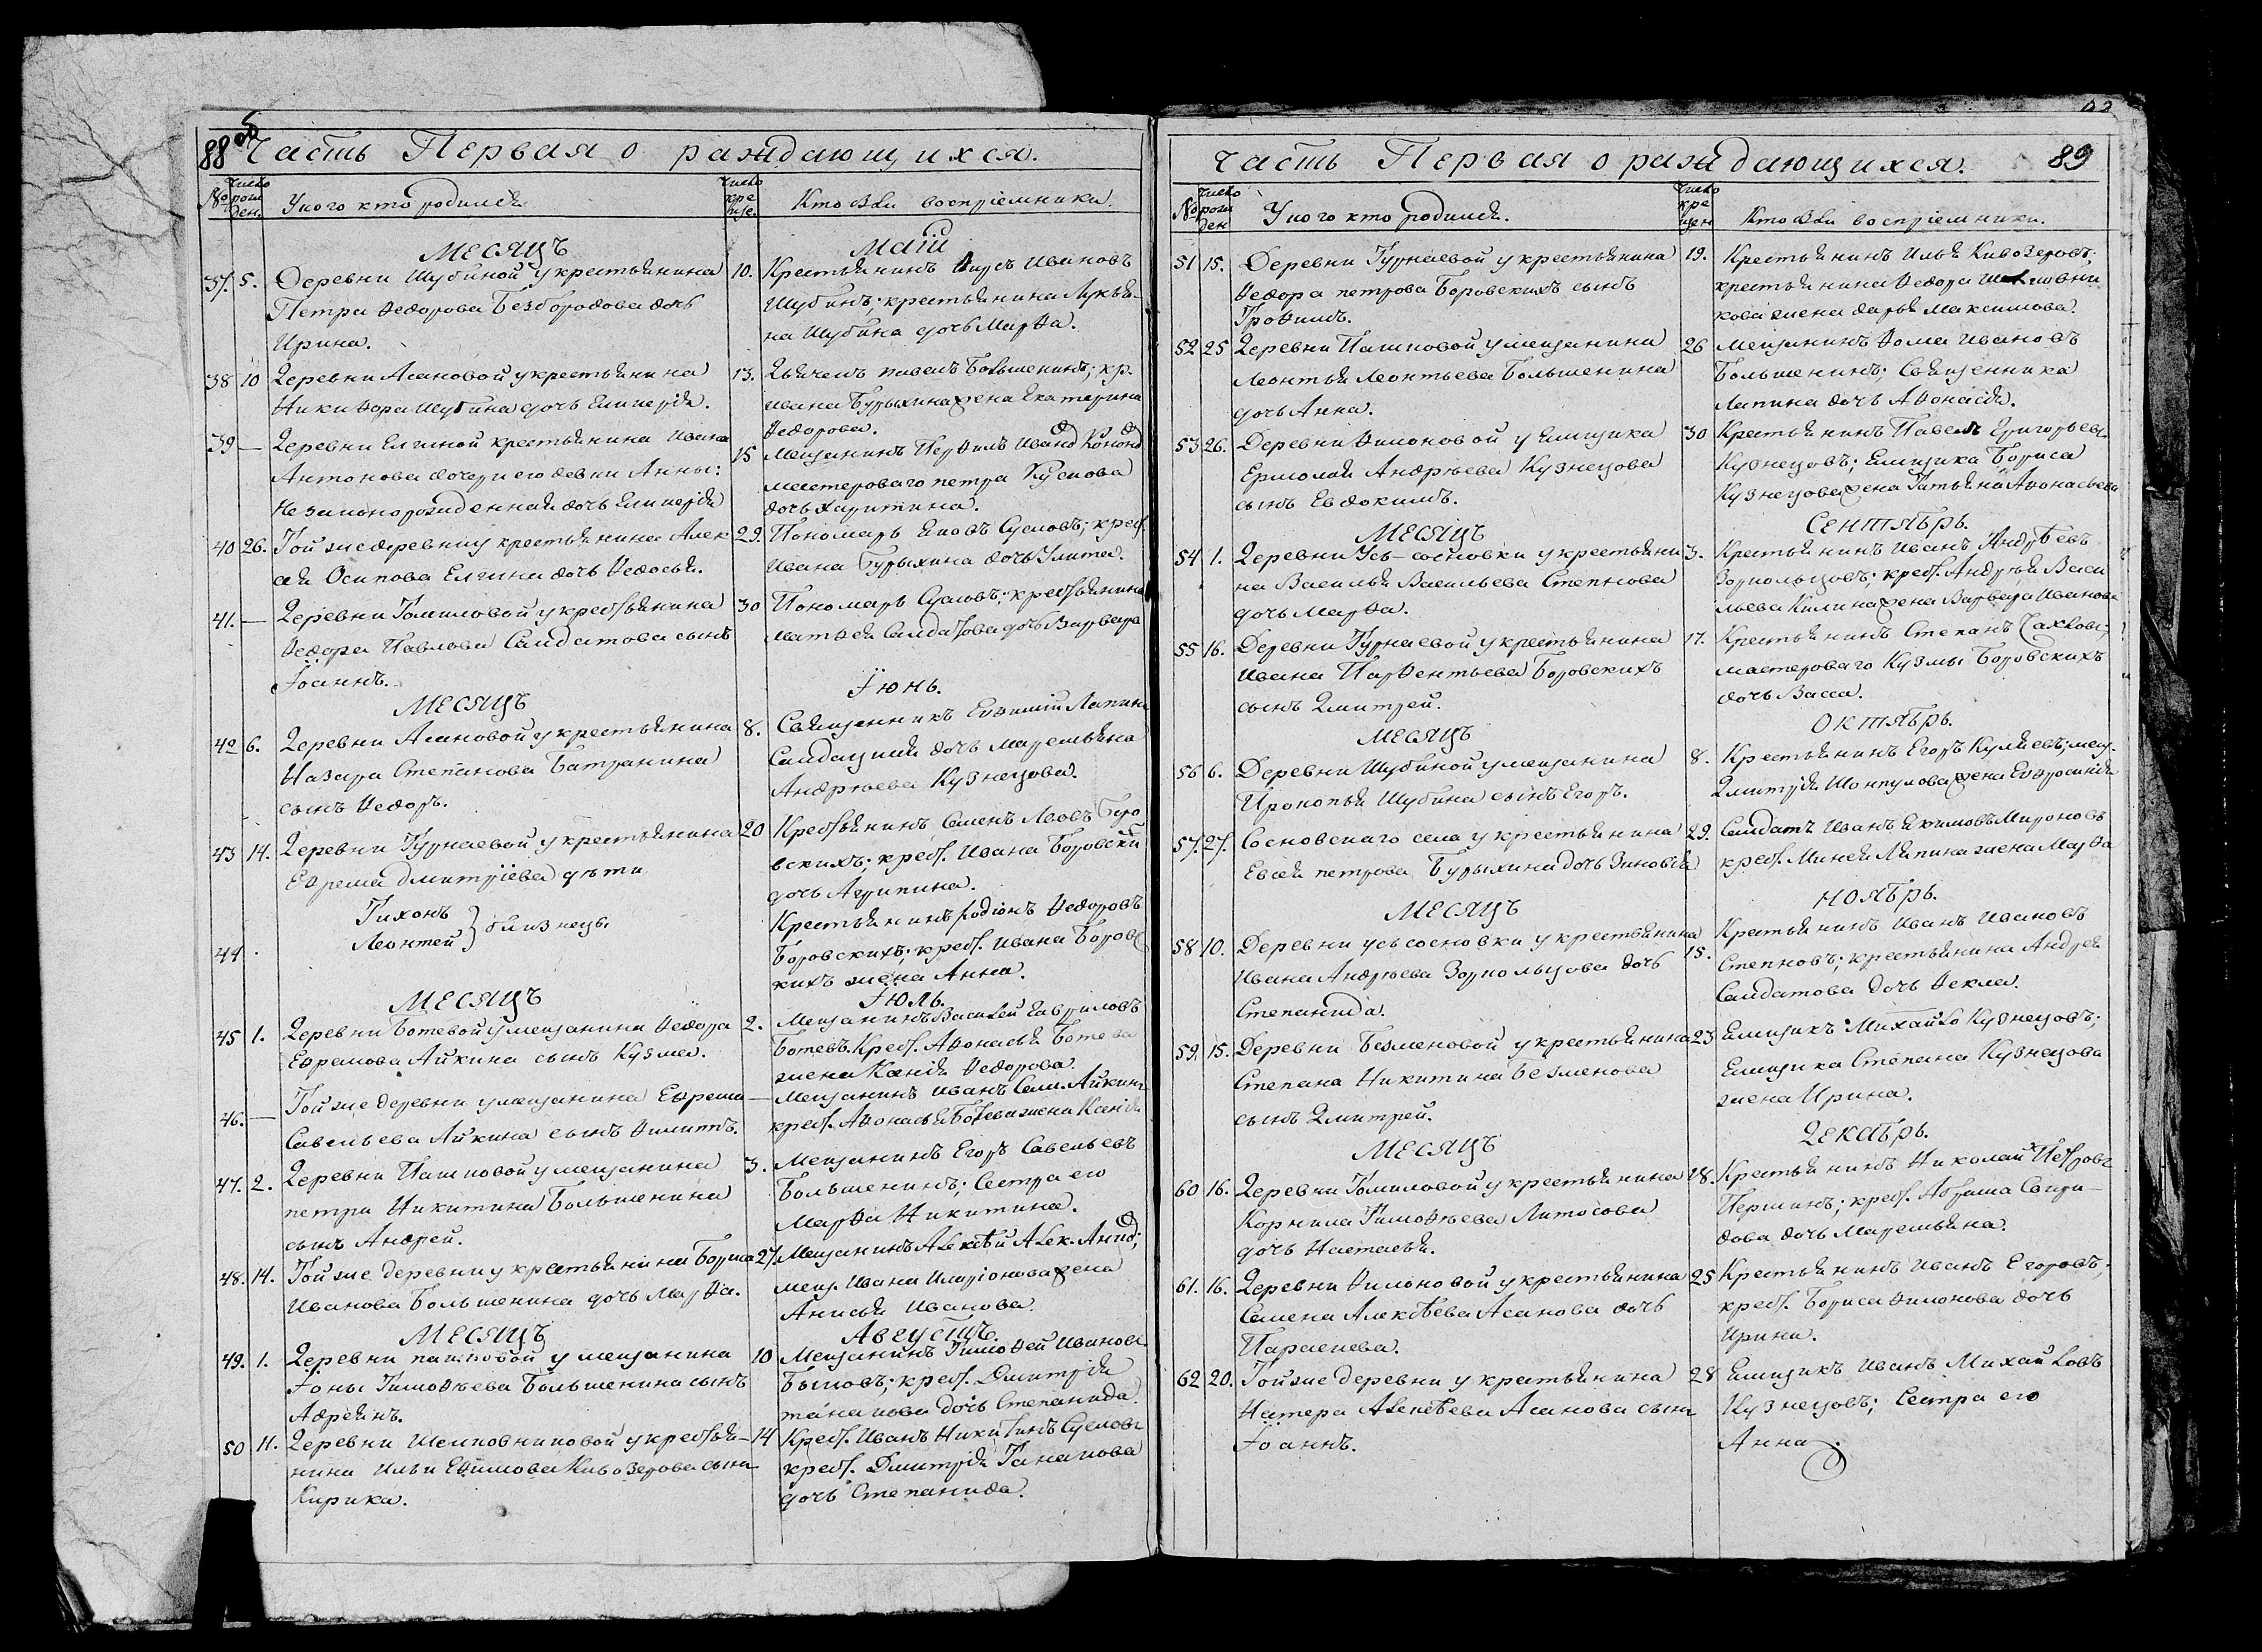 88 об
Часть Первая о раждающихся.
№
число рож ден.
У кого кто родился
число кре ще.
Кто были восприемники.
Месяцъ
Маій
37. 5. Деревни Шубиной у крестьянина
Петра Ѳедорова Безбородова дочь
Ирина.
10. Крестьянинъ Ѳирсъ Ивановъ
Шубинъ; крестьянина Лукья-
на Шубина дочь Марѳа.
38 10 Деревни Асановой у крестьянина
Никифора Шубина дочь Гликерія.
13. Дьячекъ павелъ Большенинъ; кр.
ивана Бурыхина жена Екатерина
Ѳедорова.
39 — Деревни Елгиной крестьянина Ивана
Антонова дочери его девки Анны:
незаконорожденная дочь Гликерія
15 Мещанинъ Перфилъ
мастероваго петра Кускова
дочь Харитина.
40 26. Той же деревни у крестьянина Алек
сѣя Осипова Елгина дочь Ѳедосья.
29. Пономарь Яковъ Сусловъ; крес.
Ивана Бурыхина дочь Улита.
41. — Деревни Томиловой у крестьянина
Ѳедора Павлова Салдатова сынъ
Іоаннъ.
30 Пономарь Сусловъ; крестьянина
Матвея Салдатова дочь Варвара
Месяцъ
Іюнь.
42 6. Деревни Асановой у крестьянина
Назара Степанова Батранина
сынъ Ѳедоръ.
8. Священникъ Евфимій Лапинъ
Салдацкая дочь Маремьяна
Андреева Кузнецова.
43 14. Деревни Гурнаевой у крестьянина
Ефрема Дмитріева дѣти
Тихонъ
Леонтей } близнецы
44
20 Крестьянинъ Семенъ Львовъ Боро
вскихъ; крест. Ивана Боровски
дочь Агрипина.
Крестьянинъ Родіонъ Ѳедоровъ
Боровскихъ; крест. Ивана Боровс
кихъ жена Анна.
Месяцъ
Іюль.
45 1. Деревни Ботевой у мещанина Ѳедора
Ефремова Айкина сынъ Кузма.
2. Мещанинъ Василей Гавриловъ
Ботевъ. Крест. Афонасья Ботева
жена Ксенія Ѳедорова.
46. — Той же деревни у мещанина Ефрема
Савельева Айкина сынъ Филиппъ.
— Мещанинъ Иванъ Сем. Айкинъ
крест. Афонасья Ботева жена Ксенія
47. 2. Деревни Пашковой у мещанина
петра Никитина Большенина
сынъ Андрей.
3. Мещанинъ Егоръ Савельевъ
Большенинъ; Сестра его
Марѳа Никитина.
48. 14. Той же деревни у крестьянина Бориса
Иванова Большенина дочь Марѳа.
27. Мещанинъ Алексѣй Алек.
мещ. Ивана Иларіонова жена
Анисья Иванова.
Месяцъ
Августъ.
49. 1. Деревни пашковой у мещанина
Іоны Тимоѳѣева Большенина сынъ
Адріянъ.
10 Мещанинъ Тимоѳей Ивановъ
Быковъ; крест. Дмитрія
танакова дочь Степанида.
50 11. Деревни Шелковниковой у крестья-
нина Ильи Ефимова Кивозерова сынъ
Кирика.
14 Крест. Иванъ Никитинъ Сусловъ
крест. Дмитрія Танакова
дочь Степанида.
Часть Первая о раждающихся.
89
№
число рож ден
У кого кто родился.
число кре щен
Кто были восприемники.
51 15. Деревни Гурнаевой у крестьянина
Ѳедора петрова Боровскихъ сынъ
Трофимъ.
19. Крестьянинъ Илья Кивозеровъ;
крестьянина Ѳедора Шелковни
кова жена дарья Максимова.
52 25 Деревни Пашковой у мещанина
Леонтья Леонтьева Большенина
дочь Анна.
26 Мещанинъ Ѳома Ивановъ
Большенинъ; Священника
Лапина дочь Афонасія.
53 26. Деревни Филоновой у ямщика
Ермолая Андрѣева Кузнецова
сынъ Евдокимъ.
30 Крестьянинъ Павелъ Григорьевъ
Кузнецовъ; ямщика Бориса
Кузнецова жена Татьяна Афонасьева
Месяцъ
Сентябрь.
54 1. Деревни Усь-сосновки у крестьяни
на Василья Васильева Степнова
дочь Марѳа.
3. Крестьянинъ Иванъ Андрѣевъ
Зорнольцовъ; крест. Андрѣя Васи
льева Килина жена Варвара Иванова
55 16. Деревни Гурнаевой у крестьянина
Ивана Парѳентьева Боровскихъ
сынъ Дмитрей.
17. Крестьянинъ Степанъ Чахловъ;
мастероваго Кузмы Боровскихъ
дочь Васса.
Месяцъ
Октябрь.
56 6. Деревни Шубиной у мещанина
Прокопья Шубина сынъ Егоръ.
8. Крестьянинъ Егоръ Куляевъ; мещ.
Дмитрія Шонгулова жена Евфросинія
57. 27. Сосновскаго села у крестьянина
Евсѣя петрова Бурыхина дочь Зиновія
29. Салдатъ Иванъ Якимовъ Мироновъ
крест. Минея Ляпина жена Марѳа
Месяцъ
Ноябрь.
58 10. Деревни усь сосновки у крестьянина
Ивана Андрѣева Зорнольцова дочь
Степанида.
15. Крестьянинъ Иванъ Ивановъ
Степновъ; крестьянина Андрея
Салдатова дочь Ѳекла.
59. 15. Деревни Безменовой у крестьянина
Степана Никитина Безменова
сынъ Дмитрей.
23 Ямщикъ Михайло Кузнецовъ;
Ямщика Степана Кузнецова
жена Ирина.
Месяцъ
Декабрь.
60 16. Деревни Томиловой у крестьянина
Корнила Тимоѳѣева Литосова
дочь Настасья.
18. Крестьянинъ Николай Петровъ
Першинъ; крест. Абрама Свири-
дова дочь Маремьяна.
61. 16. Деревни Филоновой у крестьянина
Семена Алексѣева Асанова дочь
Парасkева.
25 Крестьянинъ Иванъ Егоровъ;
крест. Бориса Филонова дочь
Ирина.
62 20. Той же деревни у крестьянина
Нестера Алексѣева Асанова сынъ
Іоаннъ.
28 Ямщикъ Иванъ Михайловъ
Кузнецовъ; Сестра его
Анна.